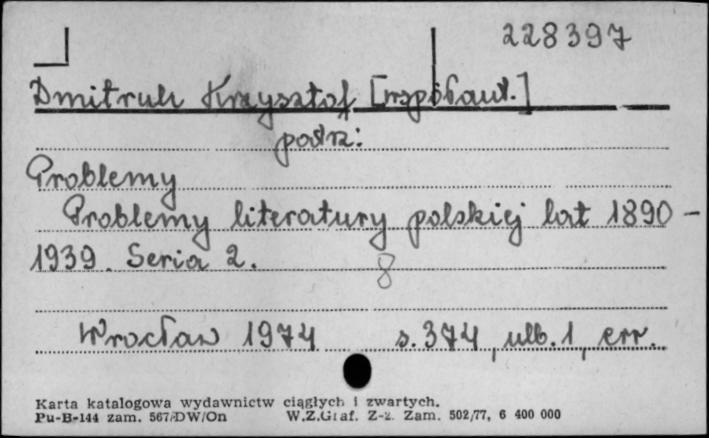 228397
Dmitruk Krzysztof [współaut.]
patrz:
Problemy
Problemy literatury polskiej lat 1890-
1939. Seria 2.
8
Wrocław 1974 s. 374, nlb. 1, err.
Karta katalogowa wydawnictw ciągłych i zwartych.
Pu-B-144 zam. 567/DW/On W.Z.Graf. Z-2. Zam. 502/77, 6 400 000